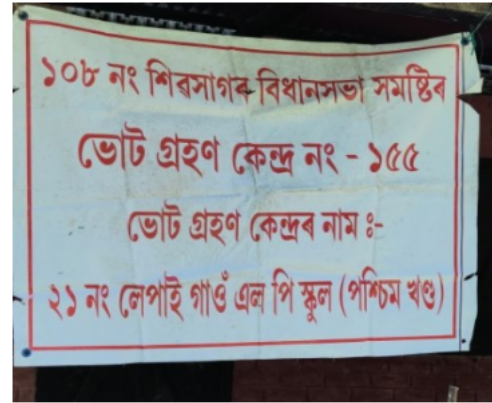 ১০৮ নং শিৱসাগৰ বিধানসভা সমষ্টিৰ
ভোট গ্ৰহণ কেন্দ্ৰ নং - ১৫৫
ভোট গ্ৰহণ কেন্দ্ৰৰ নাম ঃ-
২১ নং লেপাই গাওঁ এল পি স্কুল (পশ্চিম খণ্ড)